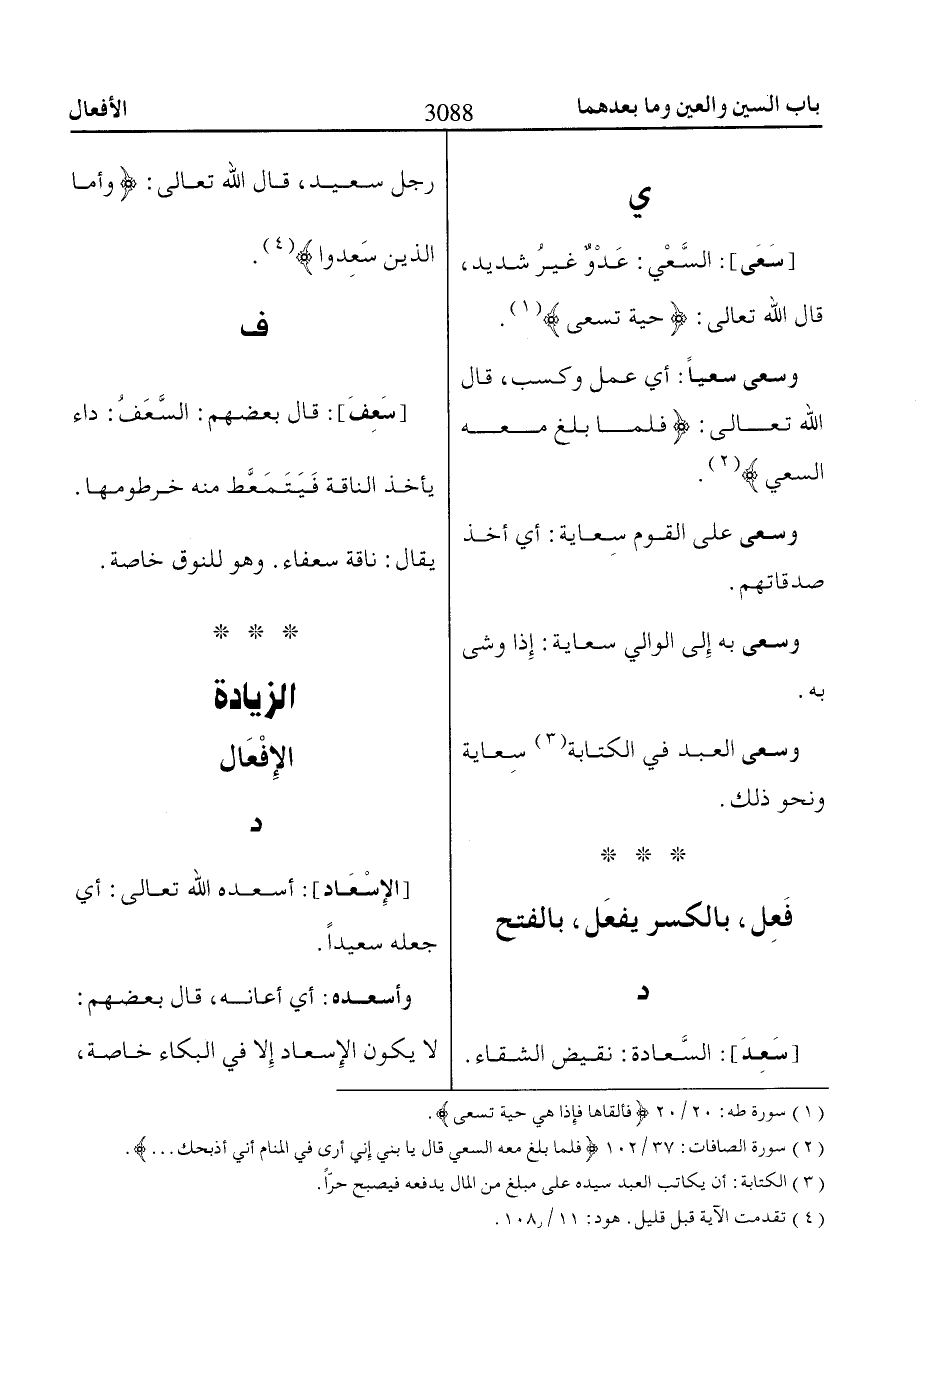 باب السين والعين وما بعدهما
3088
الأفعال
ي
[سَعَى]: السَّعْي: عَدْوٌ غيرُ شديد،
قال الله تعالى: ﴿حية تسعى﴾(١).
وسعى سعياً: أي عمل وكسب، قال
الله تعالى: ﴿فلما بلغ معه
السعي﴾(٢).
وسعى على القوم سِعاية: أي أخذ
صدقاتهم.
وسعى به إلى الوالي سعاية: إذا وشى
به.
وسعى العبد في الكتابة(٣) سِعاية
ونحو ذلك.
* * *
فَعِل، بالكسر يفعَل، بالفتح
د
[سَعِدَ]: السَّعادة: نقيض الشقاء.
رجل سعيد، قال الله تعالى: ﴿وأما
الذين سَعِدوا﴾(٤).
ف
[سَعِفَ]: قال بعضهم: السَّعَفُ: داء
يأخذ الناقة فَيَتَمَعَّط منه خرطومها.
يقال: ناقة سعفاء. وهو للنوق خاصة.
* * *
الزيادة
الإفْعَال
د
[الإسْعَاد]: أسعده الله تعالى: أي
جعله سعيداً.
وأسعده: أي أعانه، قال بعضهم:
لا يكون الإسعاد إلا في البكاء خاصة،
(١) سورة طه: ٢٠/٢٠ ﴿فألقاها فإذا هي حية تسعى﴾.
(٢) سورة الصافات: ١٠٢/٣٧ ﴿فلما بلغ معه السعي قال يا بني إني أرى في المنام أني أذبحك...﴾.
(٣) الكتابة: أن يكاتب العبد سيده على مبلغ من المال يدفعه فيصبح حرّاً.
(٤) تقدمت الآية قبل قليل. هود: ١٠٨/١١.